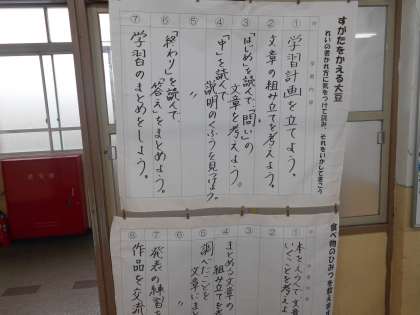 すがたをかえる大豆
れいの書かれ方に気をつけて読み、それをいかして書こう
① 学習計画を立てよう。
② 文章の組み立てを考えよう。
③ 「はじめ」を読んで、「問い」の文章を考えよう。
④ 「中」を読んで、説明のくふうを見つけよう。
⑤ 〃
⑥ 「終わり」を読んで、「答え」をまとめよう。
⑦ 学習のまとめをしよう。
食べ物のひみつを教えます
①
② 本をえらんで文章
いくことを考えよ
③
④ まとめる文章の
組み立てを考
⑤ 調べたことを
文章にまと
⑥ 〃
⑦ 発表の練習を
⑧ 作品を交流